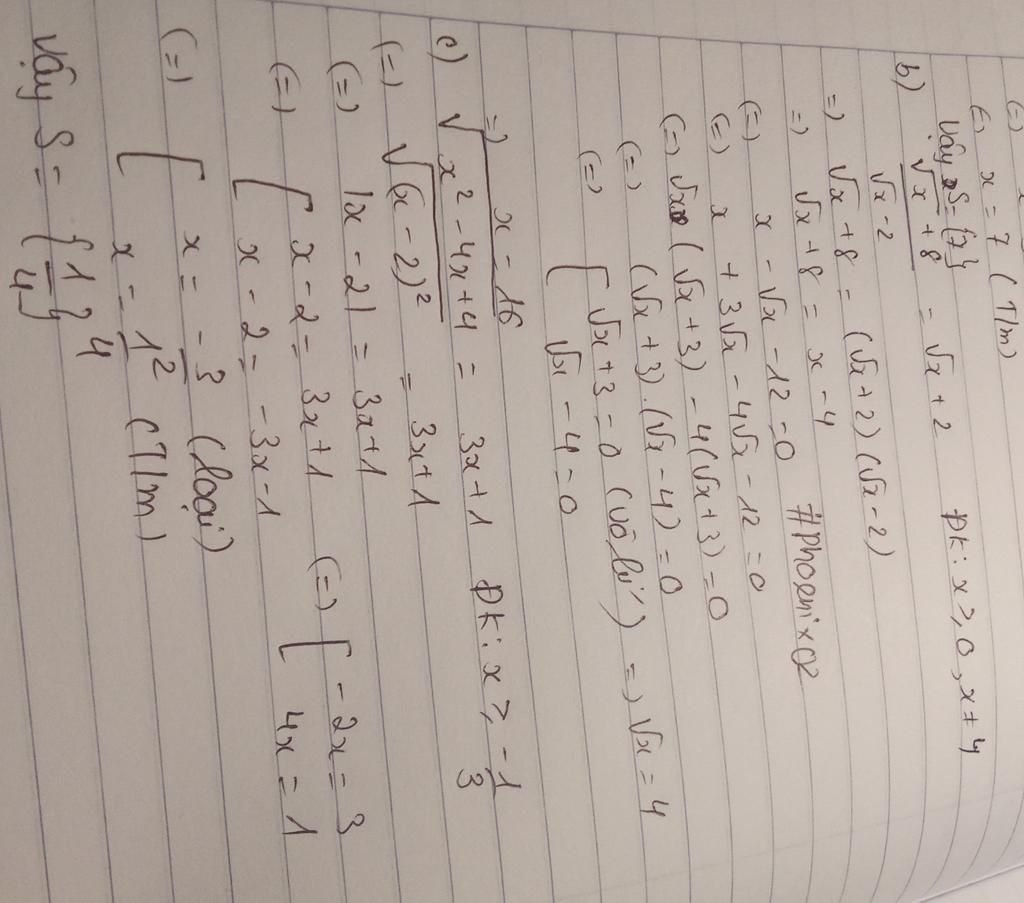 (=) x = 7 (T/m)
Vậy S = {7}
b) (√x + 8)/(√x - 2) = √x + 2 ĐK: x ≥ 0, x ≠ 4
=) √x + 8 = (√x + 2)(√x - 2)
=) √x + 8 = x - 4 #Phoenix02
(=) x - √x - 12 = 0
(=) x + 3√x - 4√x - 12 = 0
(=) √x (√x + 3) - 4(√x + 3) = 0
(=) (√x + 3).(√x - 4) = 0
(=) [ √x + 3 = 0 (vô lí) =) √x = 4
√x - 4 = 0
=) x = 16
c) √(x² - 4x + 4) = 3x + 1 ĐK: x ≥ -1/3
(=) √(x - 2)² = 3x + 1
(=) |x - 2| = 3x + 1
(=) [ x - 2 = 3x + 1 (=) [ -2x = 3
x - 2 = -3x - 1 4x = 1
(=) [ x = -3/2 (loại)
x = 1/4 (T/m)
Vậy S = {1/4}